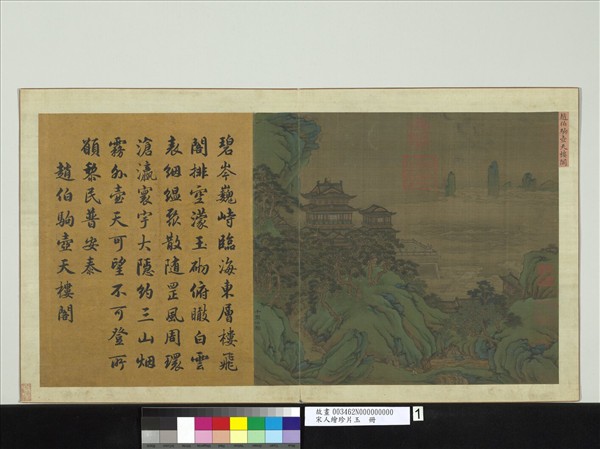 趙伯駒壺天樓閣
碧岑巍峙臨海東層樓飛
閣排空濛玉砌俯瞰白雲
表絪縕聚散隨罡風周環
滄瀛寰宇大隱約三山烟
霧外壺天可望不可登所
願黎民普安泰
趙伯駒壺天樓閣
故畫 003462N000000000
宋人繪珍片玉 冊
1